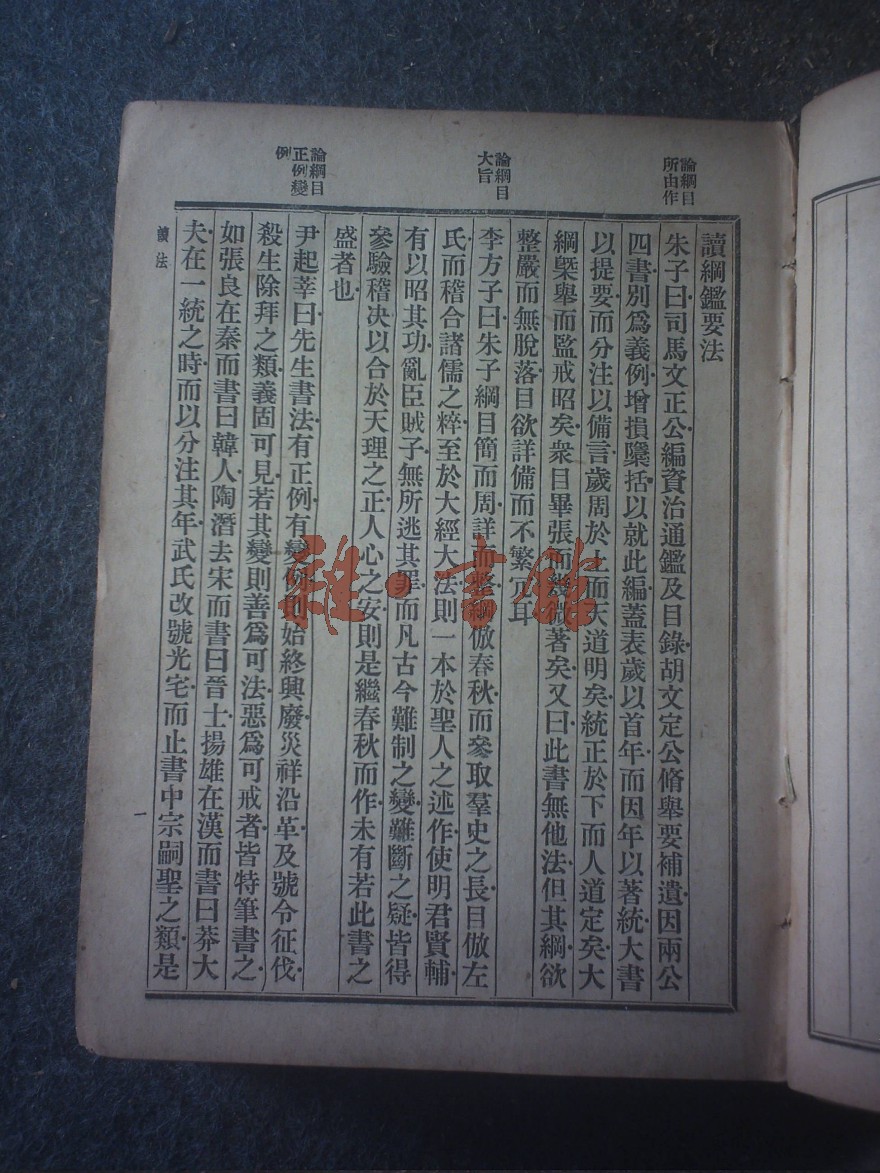 論綱目
所由作
論綱目
大旨
論綱目
正例變
例
讀綱鑑要法
朱子曰司馬文正公編資治通鑑及目錄胡文定公脩舉要補遺因兩公
四書別爲義例增損隱括以就此編蓋表歲以首年而因年以著統大書
以提要而分注以備言歲周於上而天道明矣統正於下而人道定矣大
綱槩舉而監戒昭矣衆目畢張而幾微著矣又曰此書無他法但其綱欲
整嚴而無脫落目欲詳備而不繁冗耳
李方子曰朱子綱目簡而周詳而整綱倣春秋而參取羣史之長目倣左
氏而稽合諸儒之粹至於大經大法則一本於聖人之述作使明君賢輔
有以昭其功亂臣賊子無所逃其罪而凡古今難制之變難斷之疑皆得
參驗稽決以合於天理之正人心之安則是繼春秋而作未有若此書之
盛者也
尹起莘曰先生書法有正例有變例則始終興廢災祥沿革及號令征伐
殺生除拜之類義固可見若其變則善爲可法惡爲可戒者皆特筆書之
如張良在秦而書曰韓人陶潛去宋而書曰晉士揚雄在漢而書曰莽大
夫在一統之時而以分注其年武氏改號光宅而止書中宗嗣聖之類是
讀法
一
雅書館